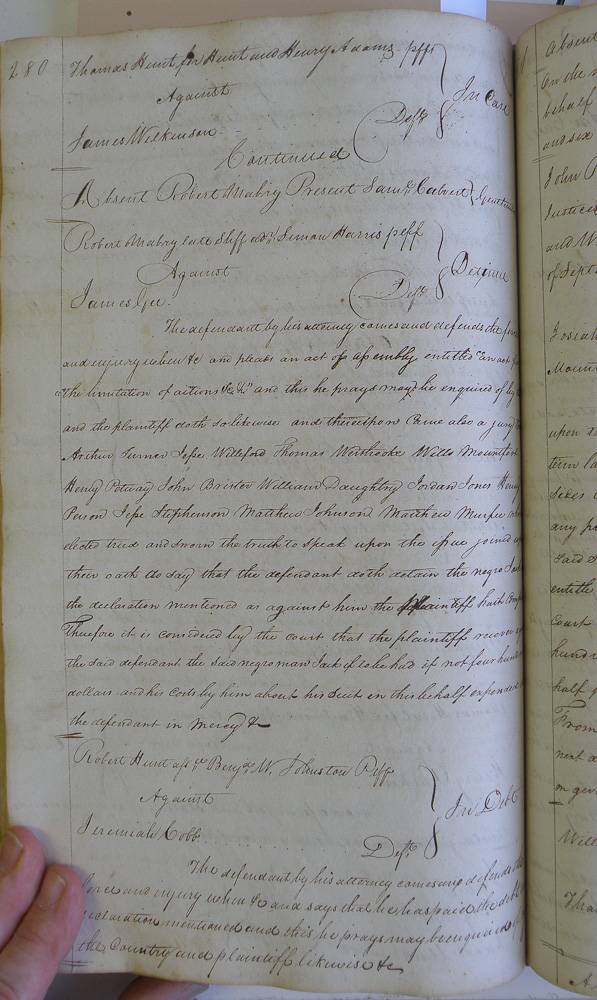 280
Thomas Hunt for Hunt and Henry Adams plffs
Against
In Case
James Wilkinson Deft
Continued
Absent Robert Mabry Present Saml Calvert Gentlemen
Robert Mabry late Shff Simon Harris plff
Against
Detinue
James Gee Deft
The defendant by his attorney comes and defends the force
and injury when &c and pleads an act of assembly entitled "an act
the limitation of actions &c &c" and this he prays may be enquired of by
and the plaintiff doth so likewise and thereupon Came also a jury
Arthur Turner Jesse Williford Thomas Westbrooke Wills Mountfort
Henry Potway John Brister William Daughtry Jordan Jones Henry
Person Jesse Stephenson Matthew Johnson Matthew Murfee who
elected tried and sworn the truth to speak upon the issue joined
their oath do say that the defendant doth detain the negro Jack
the declaration mentioned as against him the plaintiff hath
Therefore it is considered by the court that the plaintiff recover
the said defendant the said negro man Jack if to be had if not four hundred
dollars and his costs by him about his suit in this behalf expended
the defendant in mercy &c
Robert Hunt assee Benja W. Johnston Plff
Against
In Debt
Jeremiah Cobb Deft
The defendant by his attorney comes and defends the
force and injury when &c and says that he has paid the debt
declaration mentioned and this he prays may be enquired of
the Country and plaintiff likewise &c
Absent
On the
behalf
and six
John
Justices
and
of Sept
Josiah
upon
term
sides
any
said
entitle
Court
hundr
half
From
next
on
Will
Tho